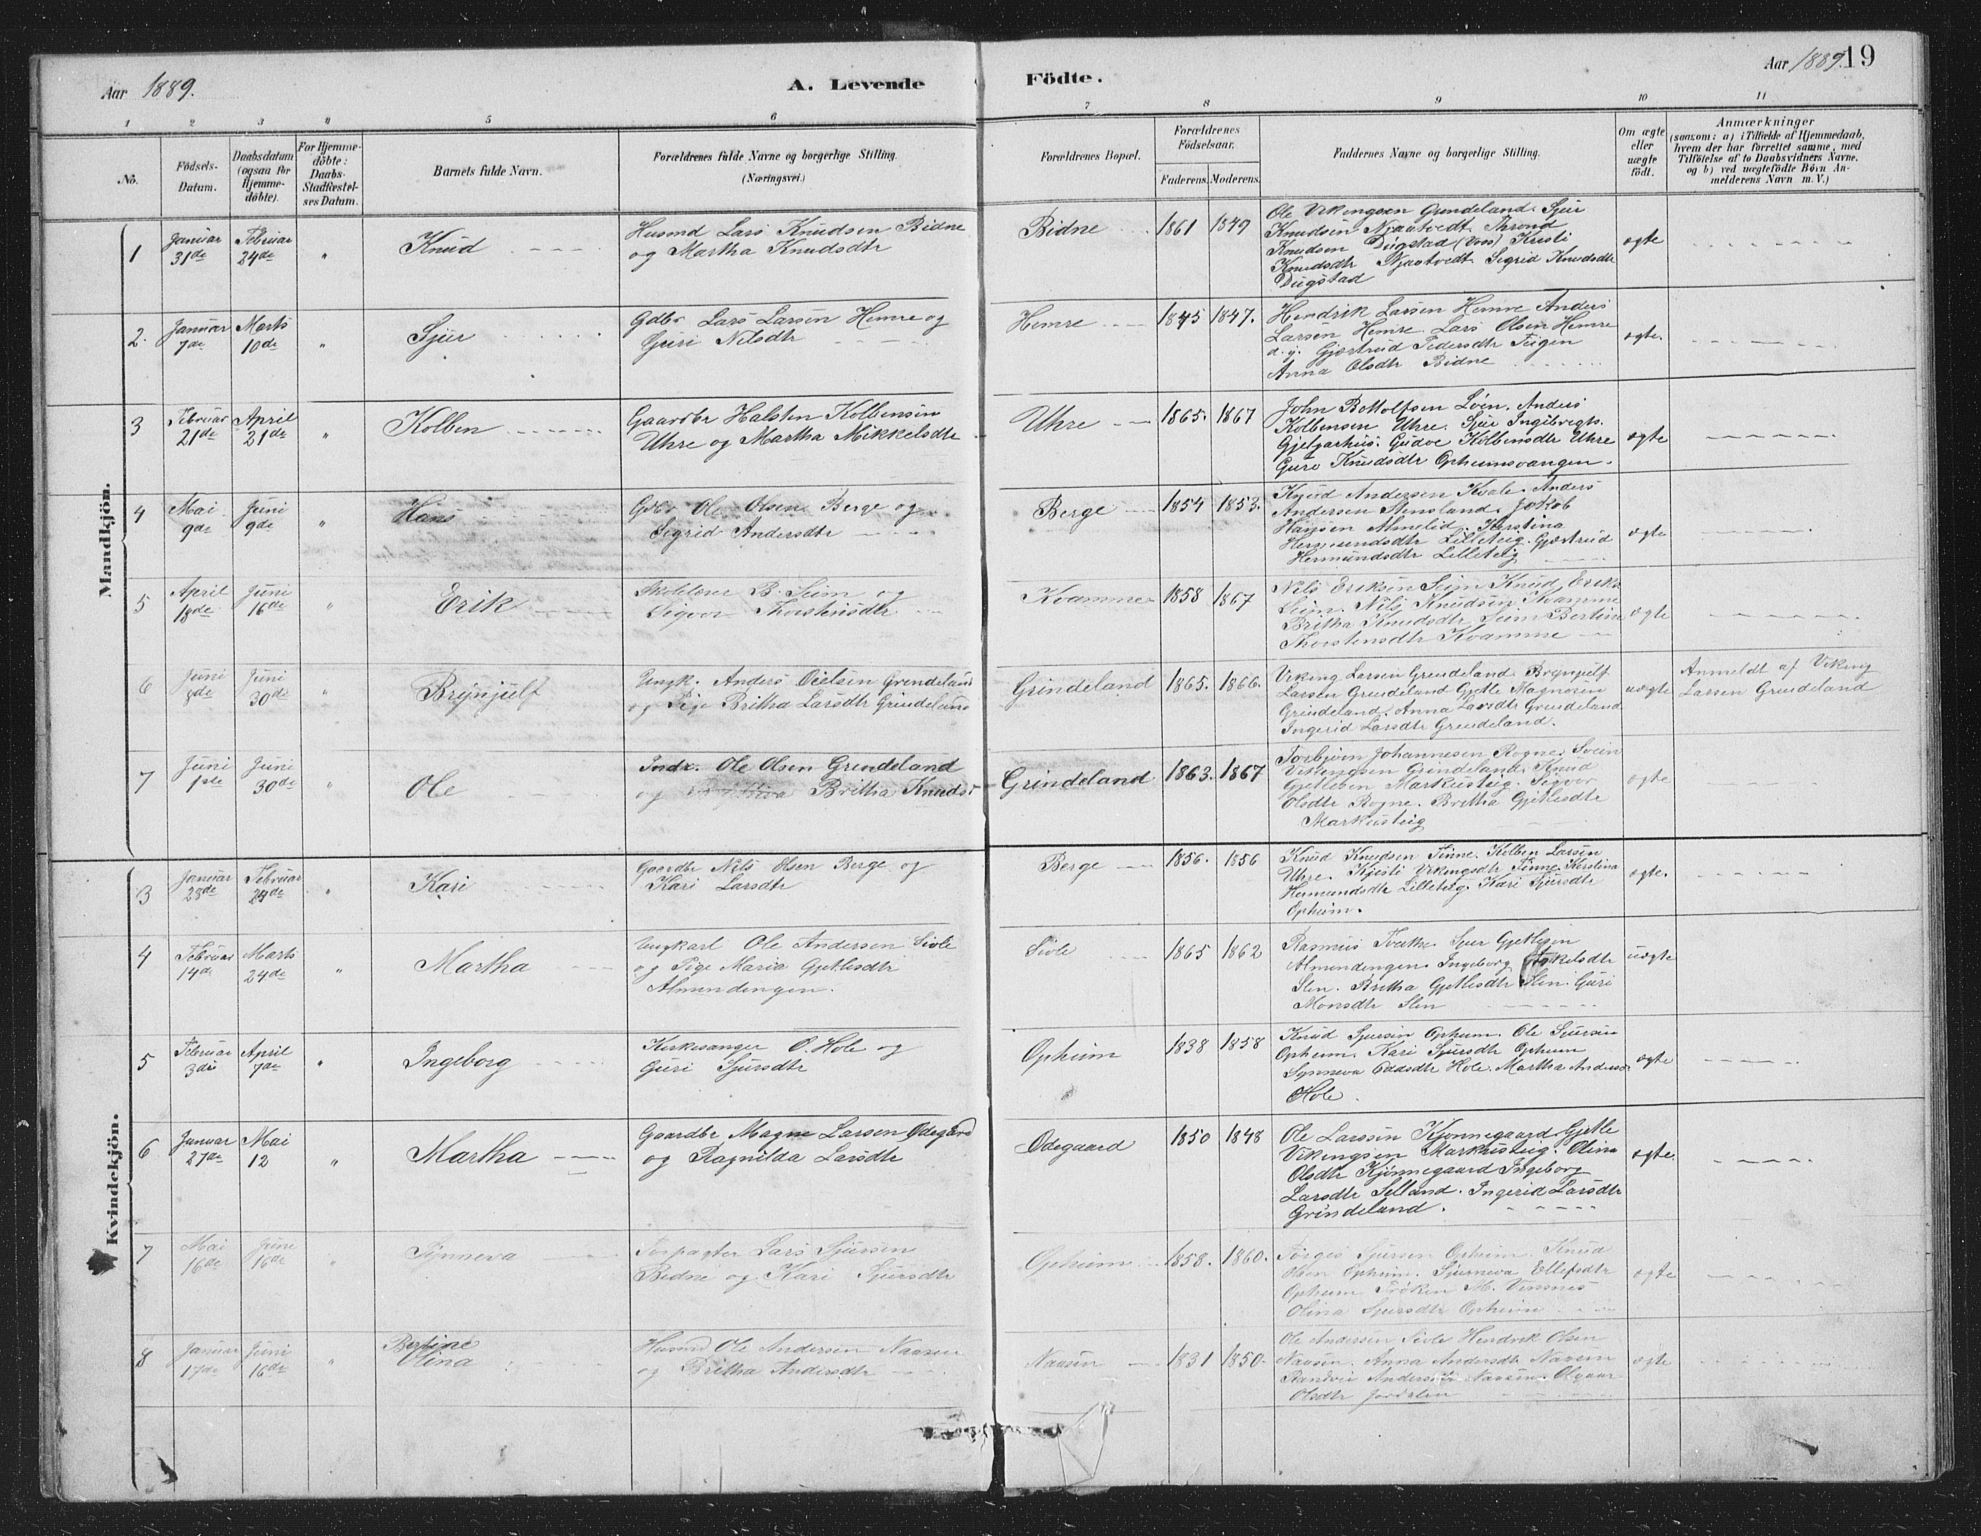 Aar 1889.
A. Levende
Födte.
Aar 1889.
19
1 2 3 4 5 6 7 8 9 10 11
No.
Födsels-Datum.
Daabsdatum (ogsaa for Hjemmedöbte).
For Hjemmedöbte: Daabs-Stadfæstelses Datum.
Barnets fulde Navn.
Forældrenes fulde Navne og borgerlige Stilling. (Næringsvei.)
Forældrenes Bopæl.
Forældrenes Födselsaar.
Faderens. Moderens.
Faddernes Navne og borgerlige Stilling.
Om ægte eller uægte födt.
Anmærkninger
(saasom: a) i Tilfælde af Hjemmedaab, hvem der har forrettet samme, med Tilföielse af to Daabsvidners Navne, og b) ved uægtefödte Börn Anmelderens Navn m. V.)
Mandkjön.
1 Januar 31de Februar 24de " Knud
Husmd Lars Knudsen Bidne
og Martha Knudsdtr
Bidne 1861 1849
Ole Vikingsen Grindeland. Sjur
Knudsen Njaatvedt. Thrond
Knudsen Dugstad (Vos) Kristi
Knudsdtr Njaatvedt. Sigrid Knudsdtr
Dugstad
ægte
2. Januar 7de Marts 10de " Sjur
Gdbr Lars Larsen Hemre og
Guri Nilsdtr
Hemre 1845 1847.
Hendrik Larsen Hemre Anders
Larsen Hemre. Lars Olsen Hemre
d. y. Gjertrud Pedersdtr Teigen
Anna Olsdtr Bidne
ægte.
3 Februar 21de April 21de " Kolben
Gaardbr Halsten Kolbensen
Uhre og Martha Mikkelsdtr
Uhre 1865. 1867
John Bottolfsen Löen. Anders
Kolbensen Uhre. Sjur Ingebregts.
Gjelgarhus. Gudve Kolbensdtr Uhre
Guro Knudsdtr Opheimsvangen.
ægte
4 Mai 9de Juni 9de " Hans
Gdbr Ole Olsen Berge og
Sigrid Andersdtr
Berge 1854 1853.
Knud Andersen Kvale. Anders
Andersen Stensland. Jakob
Hansen Almelid. Kerstina
Hermundsdtr Lilleteig. Gjertrud
Hermundsdtr Lilleteig
ægte
5 April 18de Juni 16de " Erik
Skolelærer B. Seim og
Sigvor Thorstensdtr
Kvamme 1858 1867
Nils Eriksen Seim Knud Eriks.
Seim. Nils Knudsen Kvamme
Britha Knudsdtr Seim Bertine
Thorstensdtr Kvamme
ægte
6 Juni 8de Juni 30de " Brynjulf
Ungk. Anders Grendeland
og Pige Britha Larsdtr Grindeland
Grindeland 1865. 1866.
Viking Larsen Grendeland Brynjulf
Larsen Grendeland Gjetle Magnesen
Grindeland. Anna Larsdtr Grendeland
Ingerid Larsdtr Grendeland.
uægte
Anmeldt af Viking
Larsen Grendeland
7 Juni 1ste Juni 30de " Ole
Indr. Ole Olsen Grendeland
og Britha Knudsd
Grindeland 1863. 1867
Torbjörn Johannesen Rogne. Svein
Vikingsen Grindeland. Knud
Gjetlesen Markusteig. Sigvor
Olsdtr Rogne. Britha Gjetlesdtr
Markusteig
ægte
Kvindekjön.
3 Januar 28de Februar 24de " Kari
Gaardbr Nils Olsen Berge og
Kari Larsdtr
Berge 1856. 1856
Knud Knudsen Tinne. Kolben Larsen
Uhre. Kjesti Vikingsdtr Tinne. Kerstina
Hermundsdtr Lilleteig. Kari Sjursdtr
Opheim.
ægte.
4 Februar 14de Marts 24de " Martha
Ungkarl Ole Andersen Sivle
og Pige Maria Gjetlesdtr
Almendingen.
Sivle 1865 1862
Rasmus Tvethe. Sjur Gjetlesen
Almendingen. Ingeborg Askelsdtr
Slen. Britha Gjetlesdtr Slen. Guri
Monsdtr Slen
uægte
5 Februar 3die April 7de " Ingeborg
Kirkesanger O. Hole og
Guri Sjursdtr
Opheim 1838 1858
Knud Sjursen Opheim. Ole Sjursen
Opheim. Kari Sjursdtr Opheim
Synneva Oddsdtr Hole. Martha Andersd
Hole.
ægte
6 Januar 27de Mai 12 " Martha
Gaardbr Magne Larsen Ödegård
og Ragnilda Larsdtr
Ödegaard 1850 1848
Ole Larssen Kjönnegaard Gjetle
Vikingsen Markusteig. Olina
Olsdtr Kjönnegaard Ingeborg
Larsdtr Selland. Ingerid Larsdtr
Grindeland.
ægte.
7 Mai 16de Juni 16de " Synneva
Forpagter Lars Sjursen
Bidne og Kari Sjursdtr
Opheim 1858. 1860.
Torgeis Sjursen Opheim. Knud
Olsen Opheim. Sjurneva Ellefsdtr
Opheim Fröken M. Vinsnes
Olina Sjursdtr Opheim
ægte
8 Januar 17de Juni 16de " Bertine Olina
Husmd Ole Andersen Naasen
og Britha Andersdtr
Naasen 1831 1850.
Ole Andersen Sivle Hendrik Olsen
Naasen. Anna Andersdtr Naasen
Randvei Andersdtr Naasen. Olgaar
Olsdtr Jordalen
ægte